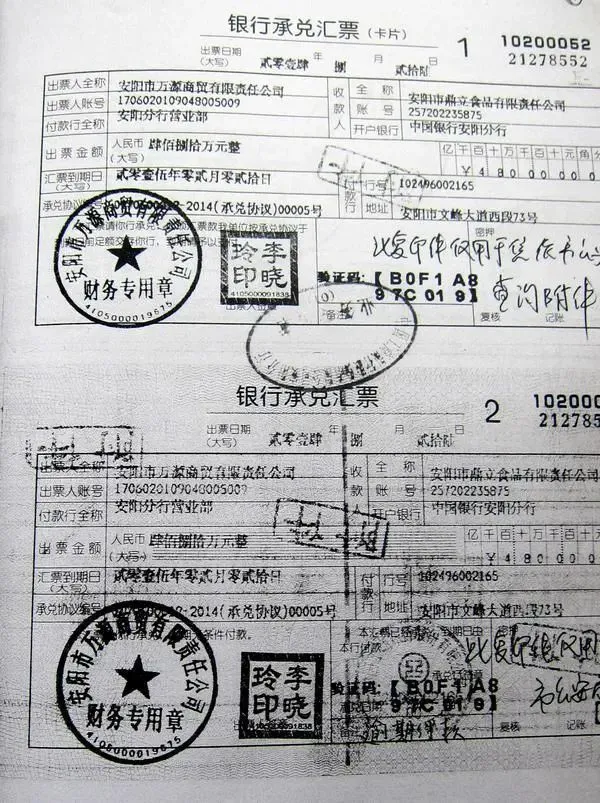 银行承兑汇票(卡片) 1 10200052
21278552
出票日期(大写) 贰零壹肆 年 捌 贰拾陆
出票人全称 安阳市万源商贸有限责任公司 收 全称 安阳市鼎立食品有限责任公司
出票人账号 1706020109048005009 款 账号 257202235875
付款行全称 安阳分行营业部 人 开户银行 中国银行安阳分行
出票金额 人民币(大写) 肆佰捌拾万元整 亿千百十万千百十元角分
¥480000
汇票到期日(大写) 贰零壹伍年零贰月零贰拾日 付款行 行号 102496002165
承兑协议 -2014(承兑协议)00005号 地址 安阳市文峰大道西段73号
密押
安阳市万源商贸有限责任公司
财务专用章
4105000019875
李晓玲印
4105000091838
出票人签章
验证码:【B0F1 A8
97C0 19】
此复印件仅用于
查询附件
备注 复核 记账
银行承兑汇票 2 1020005
2127855
出票日期(大写) 贰零壹肆 年 捌 贰拾陆
出票人全称 安阳市万源商贸有限责任公司 收 全称 安阳市鼎立食品有限责任公司
出票人账号 1706020109048005009 款 账号 257202235875
付款行全称 安阳分行营业部 人 开户银行 中国银行安阳分行
出票金额 人民币(大写) 肆佰捌拾万元整 亿千百十万千百十元
¥48000
汇票到期日(大写) 贰零壹伍年零贰月零贰拾日 付款行 行号 102496002165
承兑协议编号 -2014(承兑协议)00005号 地址 安阳市文峰大道西段73号
安阳市万源商贸有限责任公司
财务专用章
4105000019875
李晓玲印
4105000091838
此复印件仅用
验证码:【B0F1 A8
97C0 19】
复核 记账